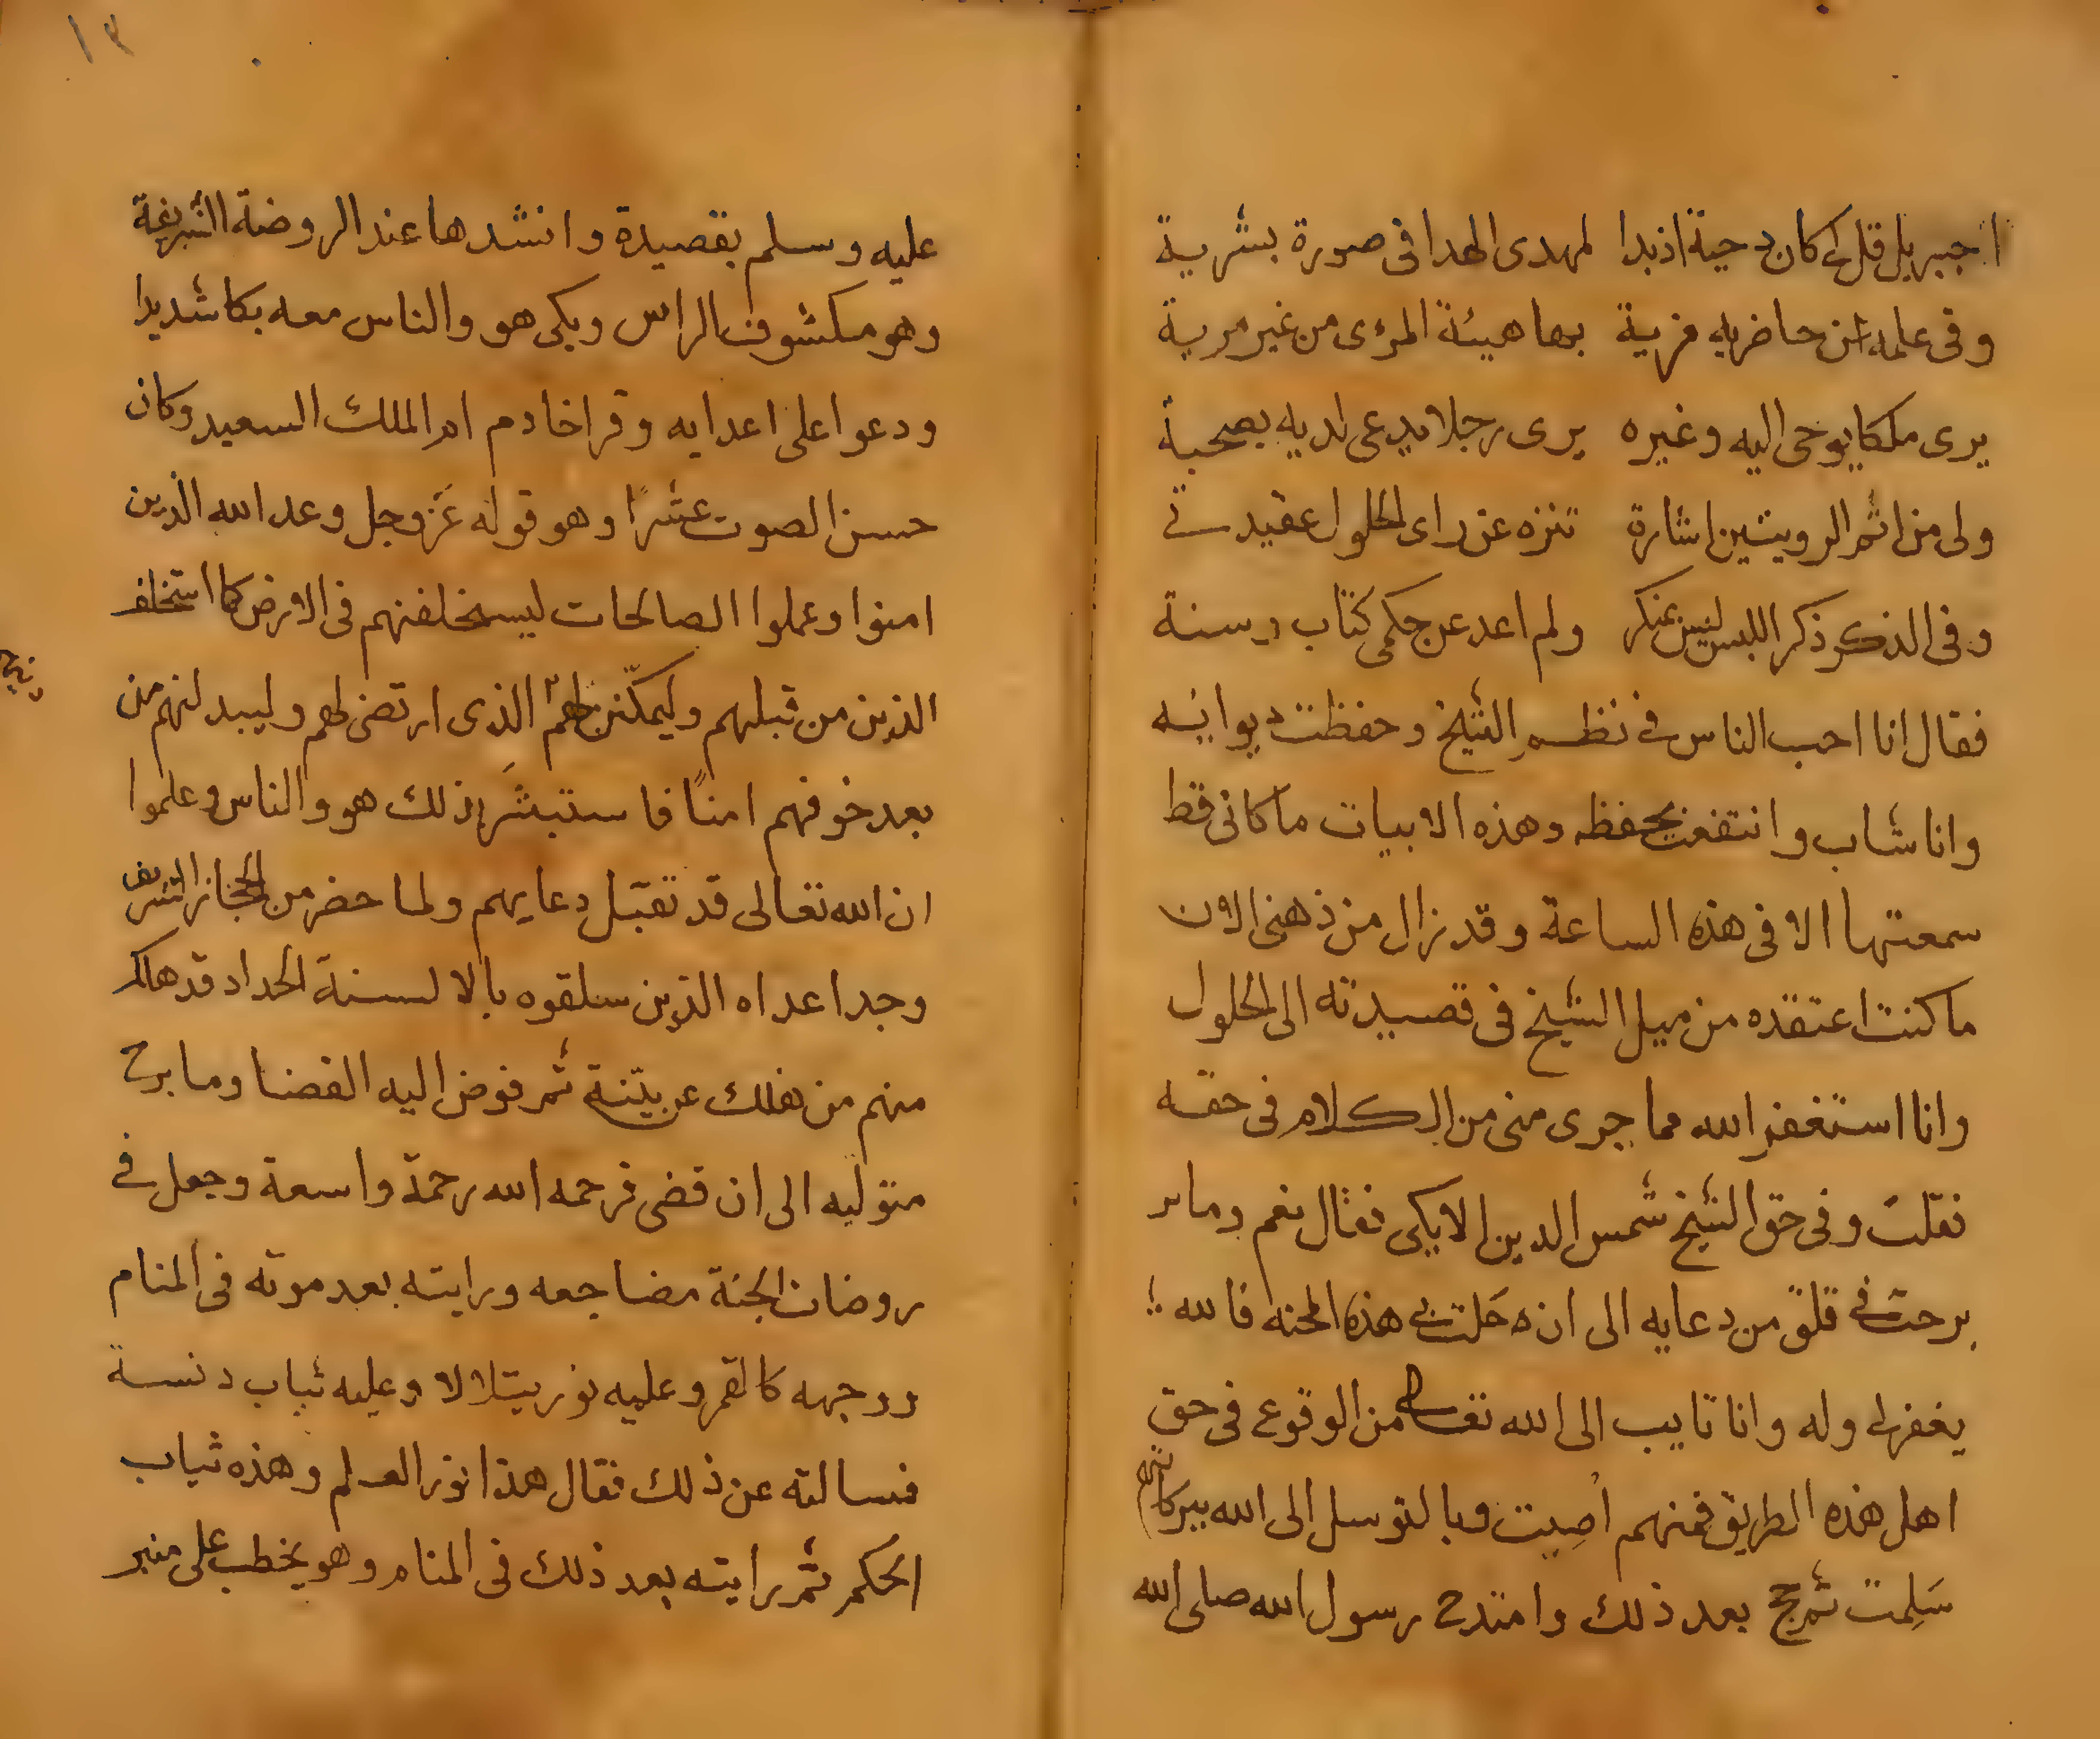 اجبريل قل لى كان دحية اذ بدا لمهدى الهدا فى صورة بشرية
وفى علمه عن حاضريه مزية بهما هيئة المرءى من غير مرية
يرى ملكا يوحى اليه وغيره يرى رجلا يدعى لديه بصحبة
ولى من اتم الرويتين اشارة تنزه عن راى الحلول عقيدتى
وفى الذكر ذكر اللبس ليس بمنكر ولم اعد عن حكمى كتاب وسنة
فقال انا احب الناس فى نظم الشيخ وحفظت ديوانه
وانا شاب وانتفعت بحفظه وهذه الابيات ماكانى قط
سمعتها الا فى هذه الساعة وقد زال من ذهنى الان
ما كنت اعتقده من ميل الشيخ فى قصيدته الى الحلول
وانا استغفر الله مما جرى منى من الكلام فى حقه
فقلت وفى حق الشيخ شمس الدين الايكى فقال نعم وما
برحت فى قلق من دعايه الى ان حلت بى هذه المحنه فالله
يغفر لى وله وانا تايب الى الله تعالى من الوقوع فى حق
اهل هذه الطريق فمنهم اصبت وبالتوسل الى الله ببركاتهم
سَلِمت ثم حج بعد ذلك وامتدح رسول الله صلى الله
١٣
عليه وسلم بقصيدة وانشدها عند الروضة الشريفة
وهو مكشوف الراس وبكى هو والناس معه بكا شديدا
ودعوا على اعدايه وقرا خادم ام الملك السعيد وكان
حسن الصوت عشرًا وهو قوله عَز وجل وعد الله الذين
امنوا وعملوا الصالحات ليستخلفنهم فى الارض كما استخلف
الذين من قبلهم وليمكّنن لهم الذى ارتضى لهم وليبدلنهم من
بعد خوفهم امنًا فاستبشَر بذلك هو والناس وعلموا
ان الله تعالى قد تقبّل دعايهم ولما حضر من الحجاز الشريف
وجد اعداه الذين سلقوه بالالسنة الحداد قد هلك
منهم من هلك عن بيّنة ثم فوض اليه القضا وما برح
متوليه الى ان قضى فرحمه الله رحمة واسعة وجعل فى
روضات الجنة مضاجعه ورايته بعد موته فى المنام
ووجهه كالقمر وعليه نور يتلالا وعليه ثياب دنسة
فسالته عن ذلك فقال هذا نور العلم وهذه ثياب
الحكم ثم رايته بعد ذلك فى المنام وهو يخطب على منبر